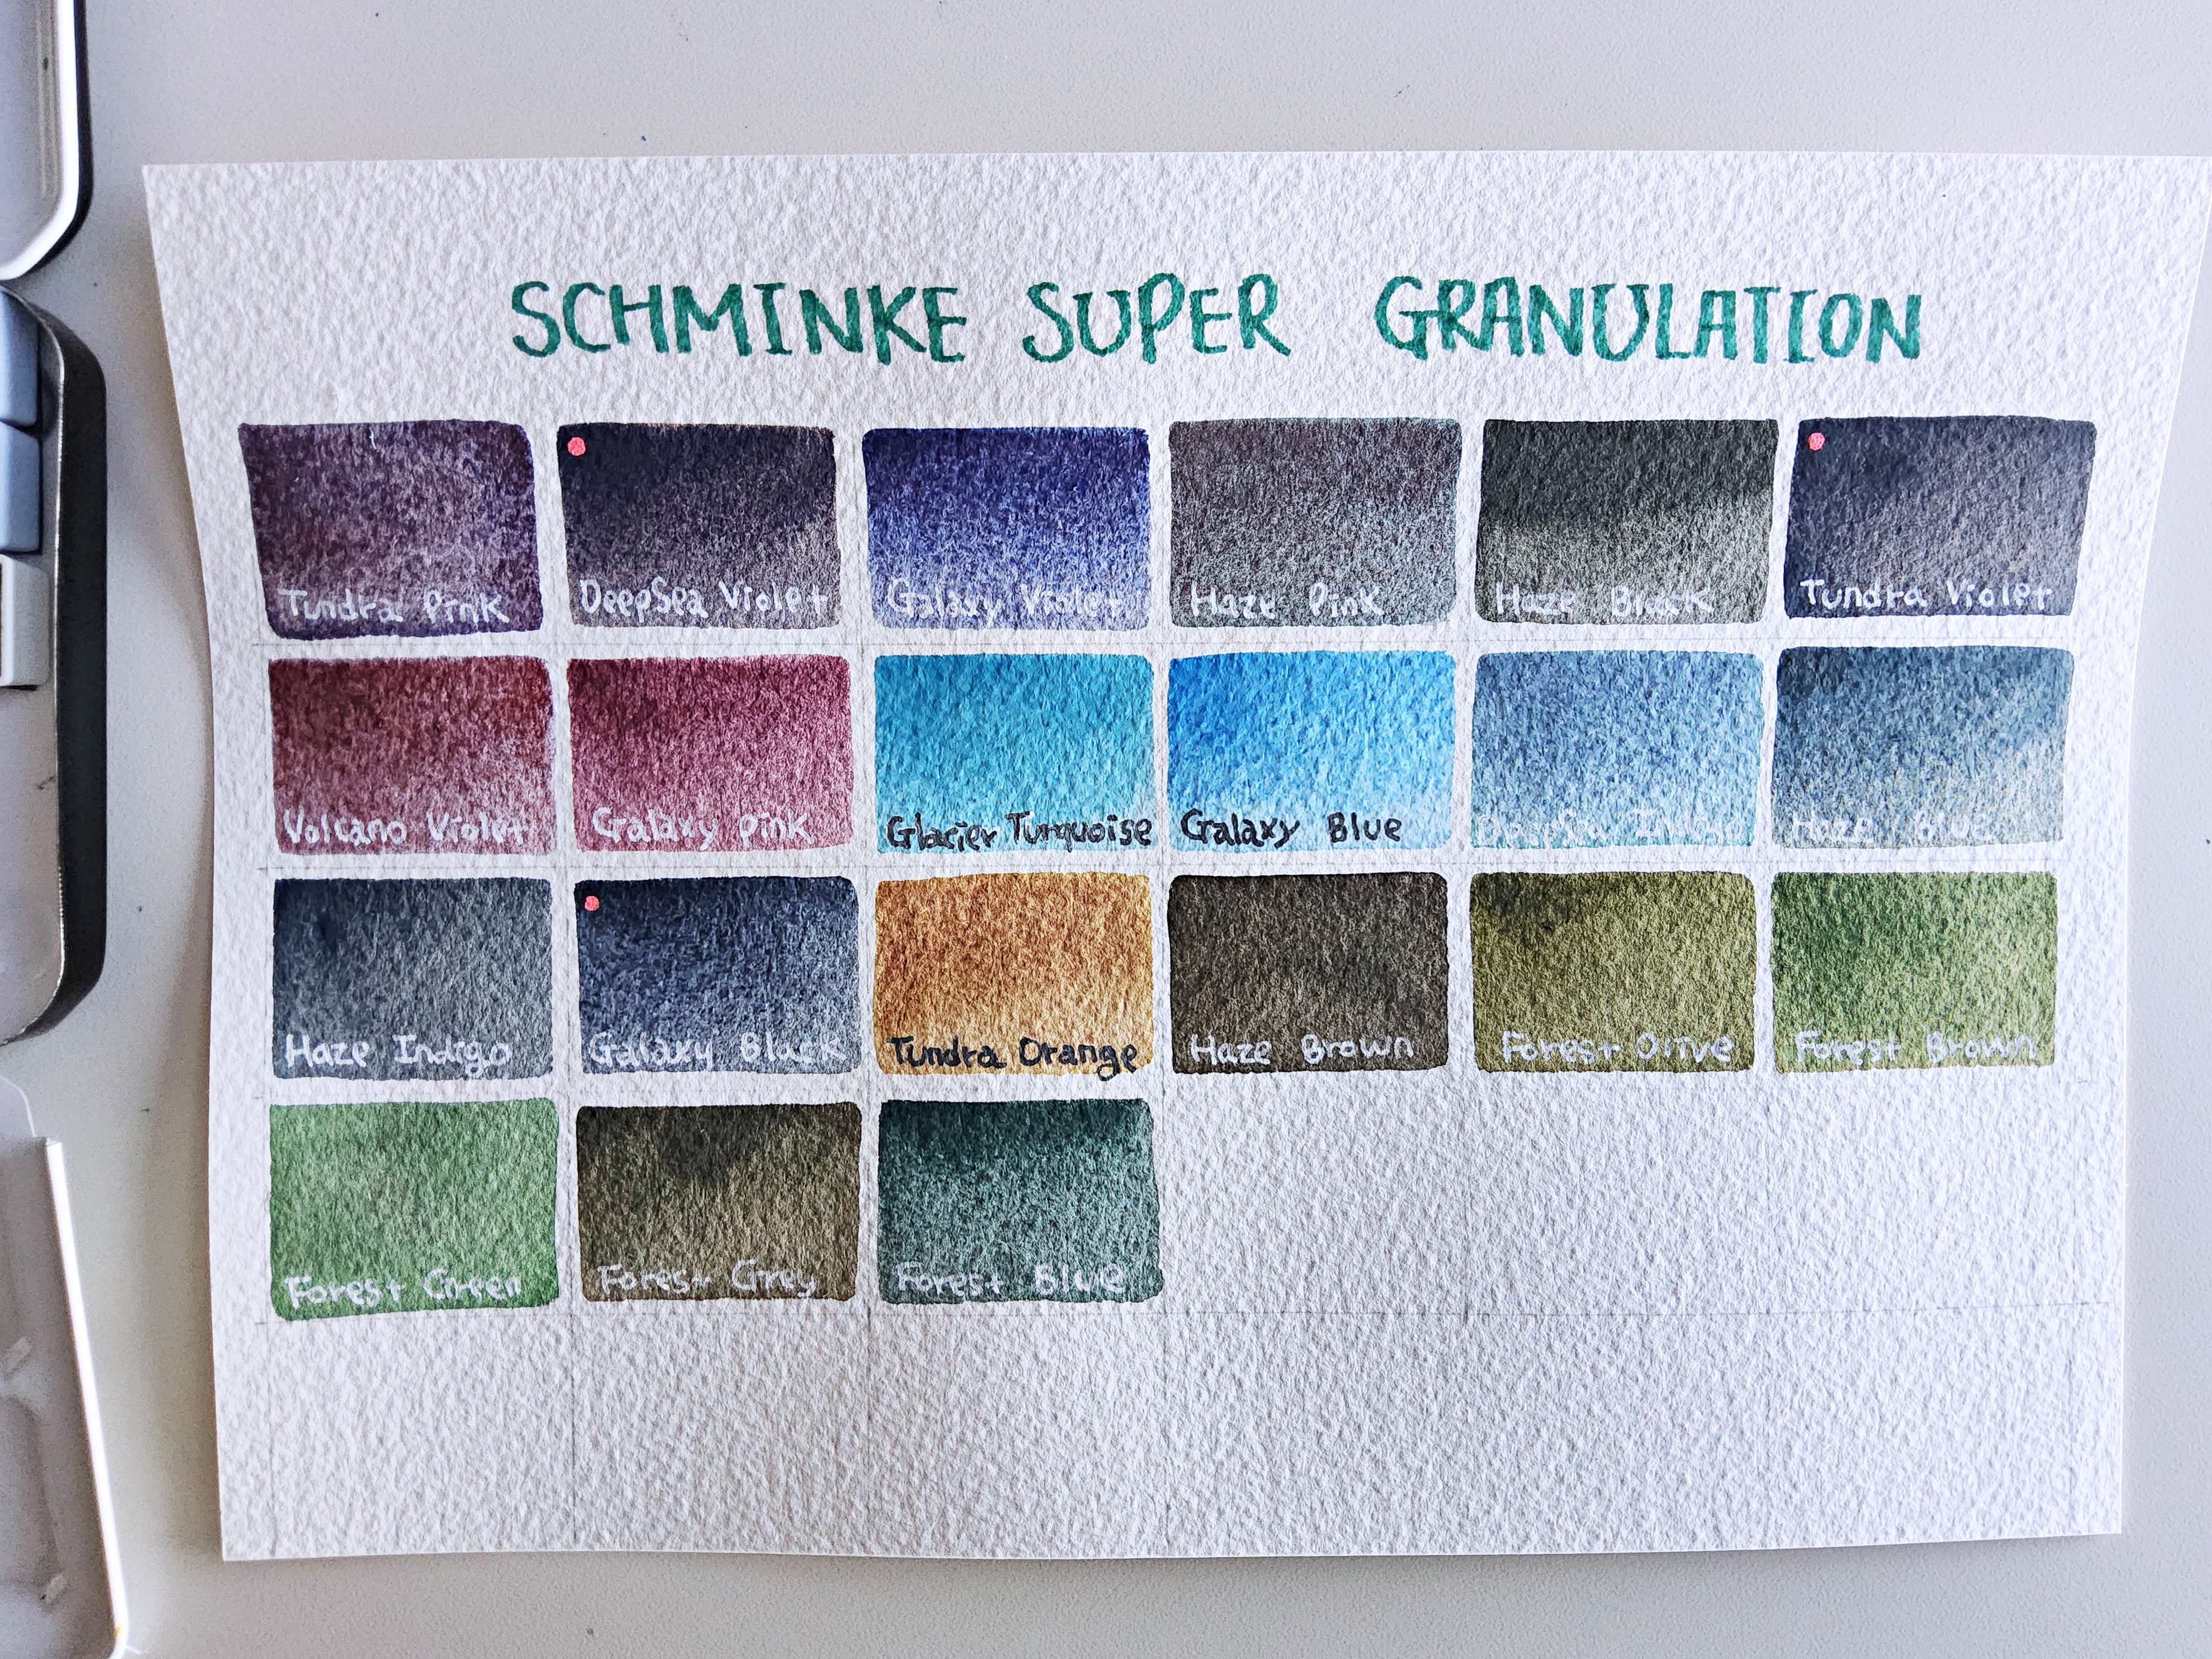 SCHMINKE SUPER GRANULATION
Tundra Pink DeepSea Violet Galaxy Violet Haze Pink Haze Black Tundra Violet
Volcano Violet Galaxy Pink Glacier Turquoise Galaxy Blue DeepSea Indigo Haze Blue
Haze Indigo Galaxy Black Tundra Orange Haze Brown Forest Olive Forest Brown
Forest Green Forest Grey Forest Blue